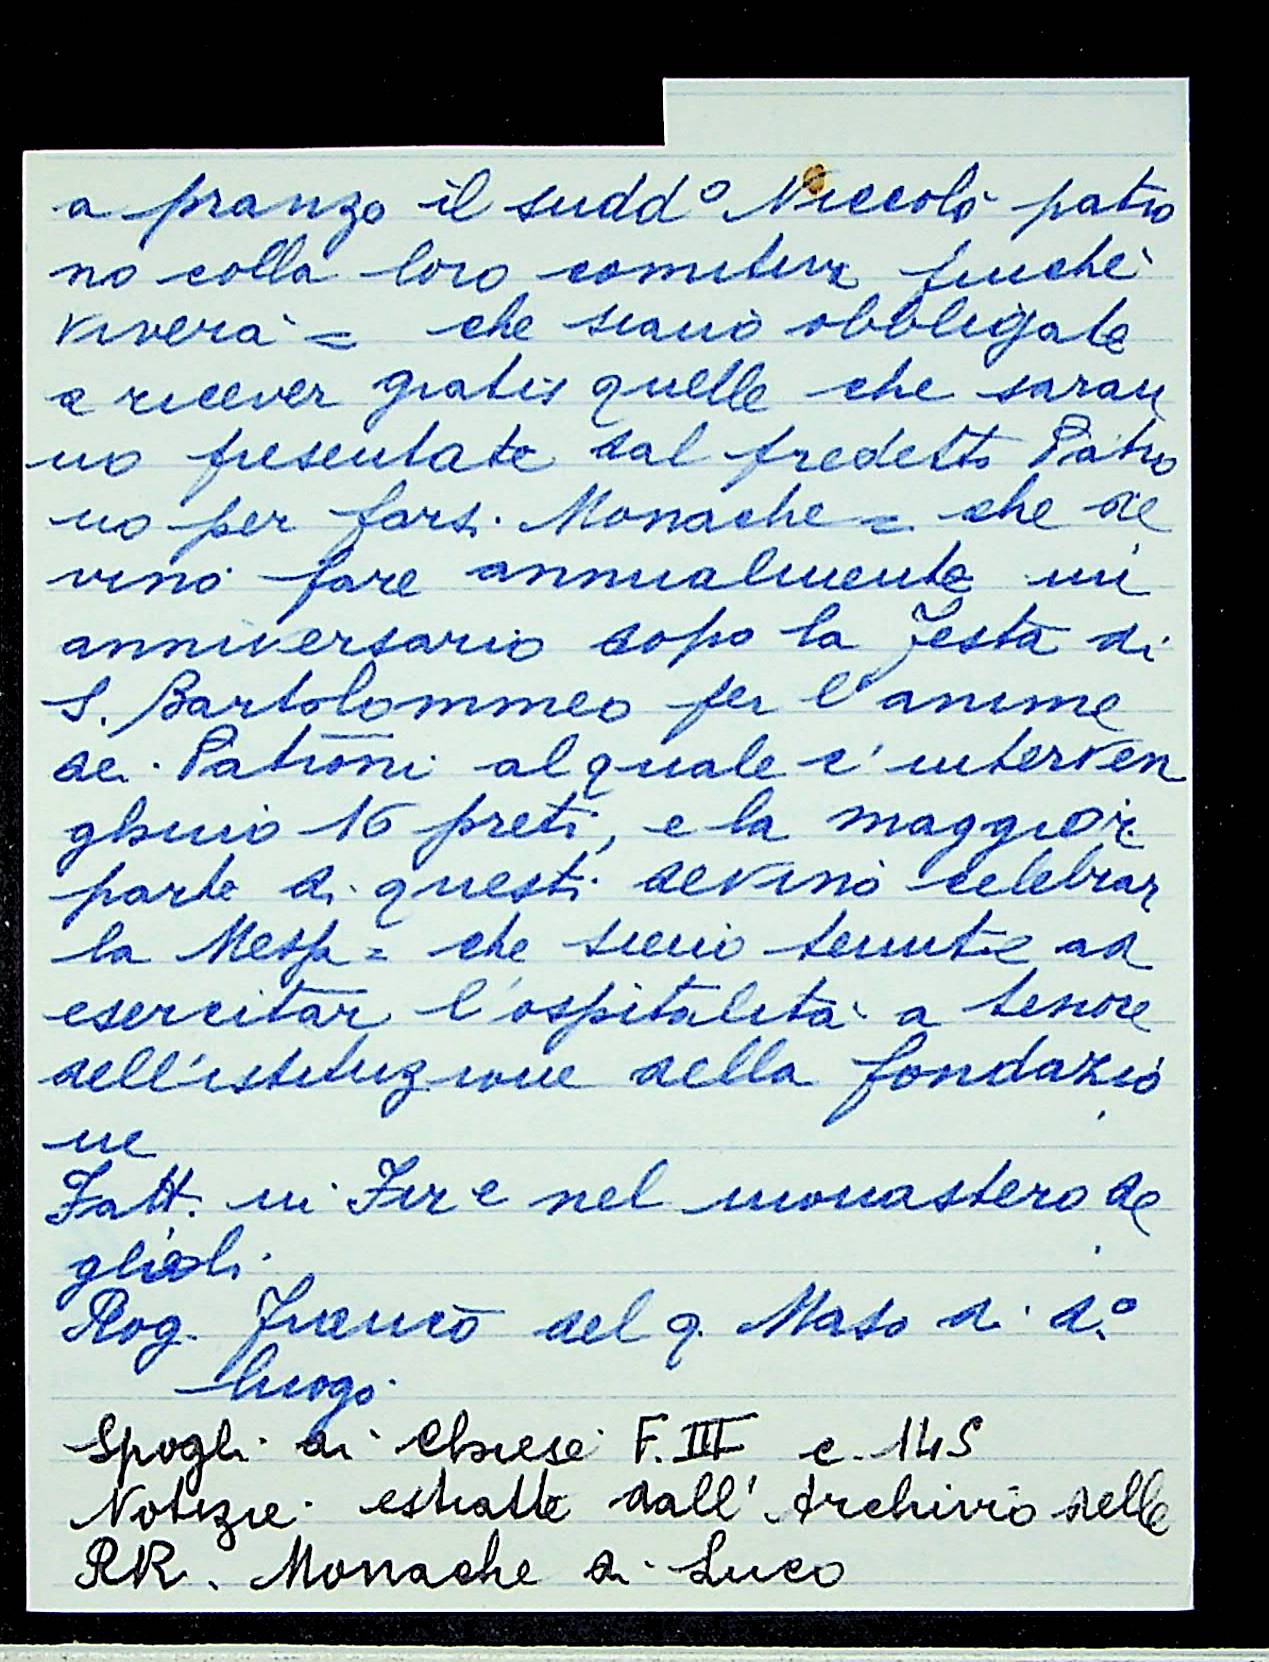 a pranzo il sudd° Niccolò patro
no colla loro comitiva finchè
viverà = che siano obbligate
a ricever gratis quelle che saran
no presentate dal predetto Patro
no per farsi Monache = che de
vino fare annualmente un
anniversario dopo la Festa di
S. Bartolommeo per l'anime
dei Patroni al quale c'interven
ghino 16 preti, e la maggior
parte di questi devino celebrar
la Messa = che sieno tenute ad
esercitar l'ospitalità a tenore
dell'istituzione della fondazio
ne
Fatt. in Fir e nel monastero de
gli
Rog. Franco del q. Maso di d.°
luogo
Spogli di Chiese F. III c. 145
Notizie estratte dall'Archivio delle
RR. Monache di Luco